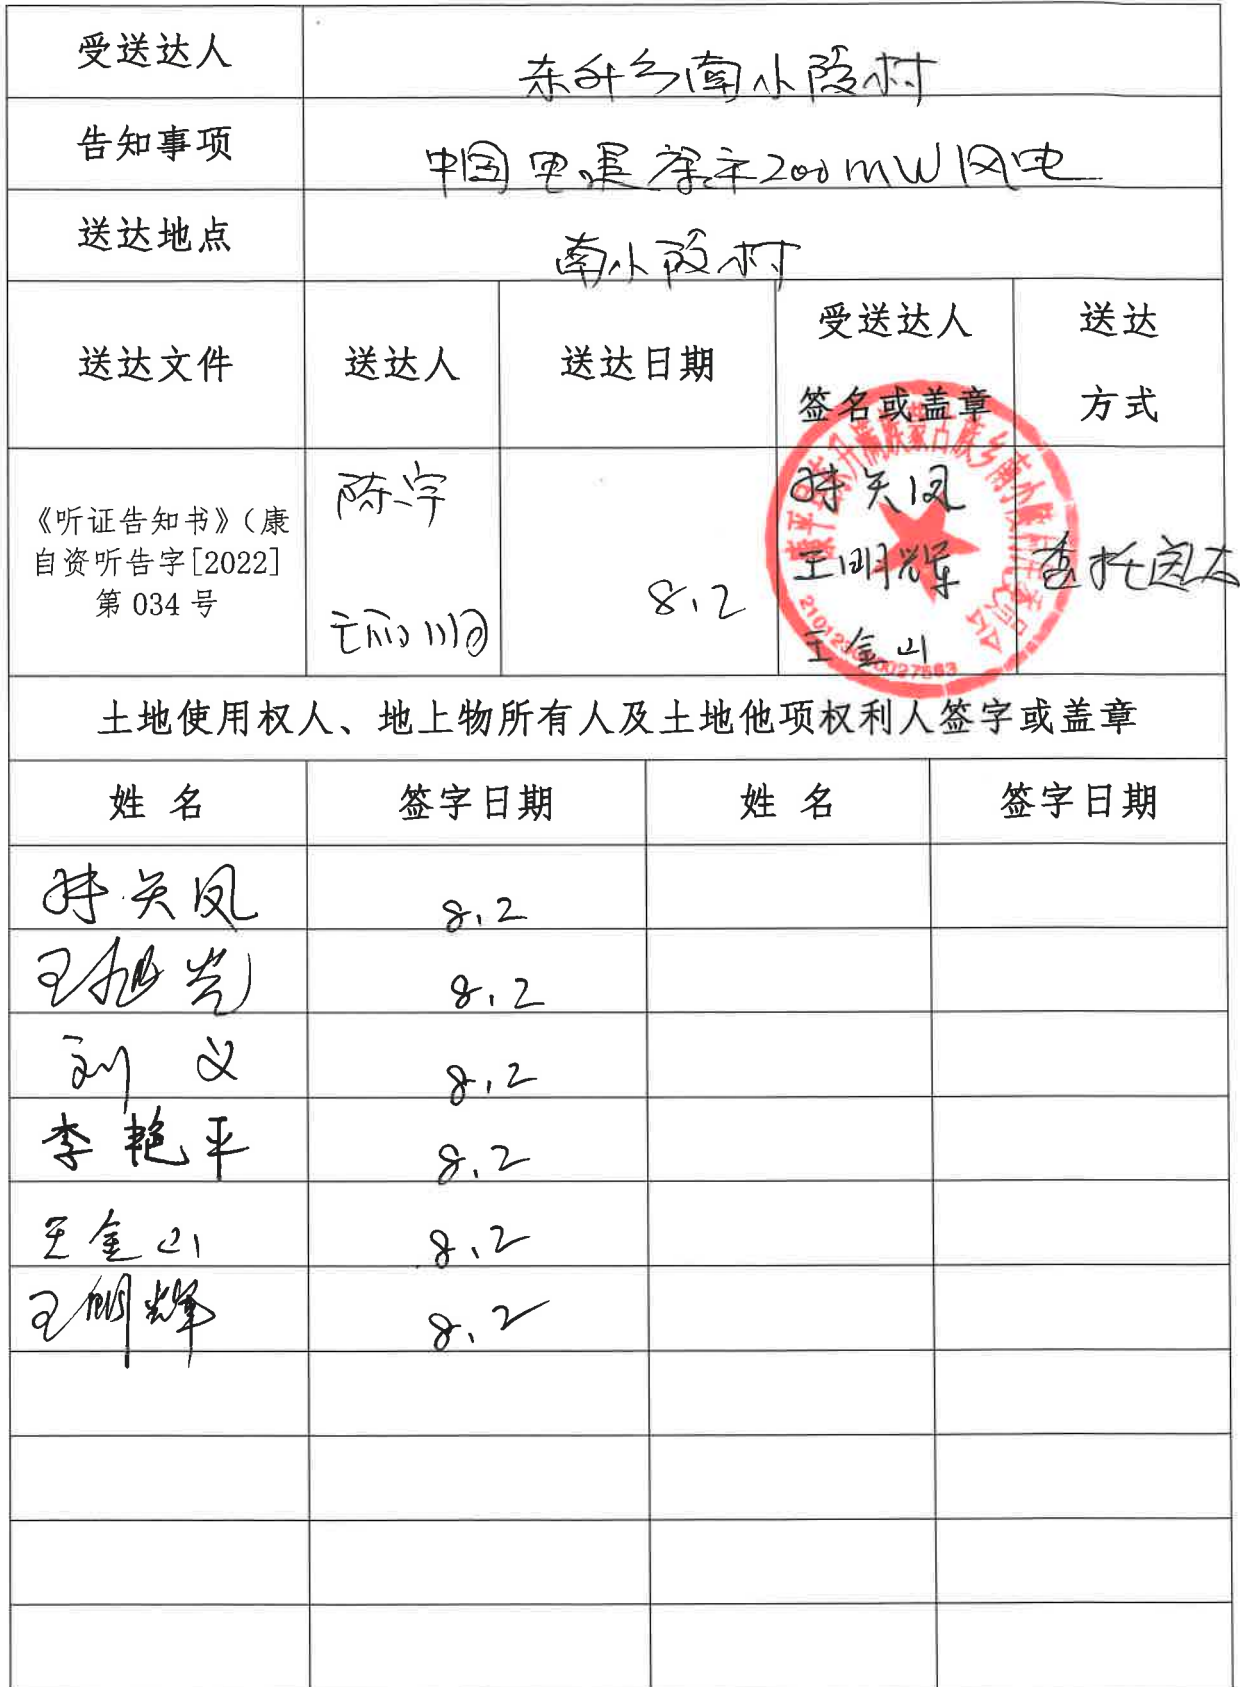 受送达人
东升乡南小陵村
告知事项
中国电建 200mW风电
送达地点
南小陵村
送达文件
送达人
送达日期
受送达人
签名或盖章
送达
方式
《听证告知书》（康
自资听告字[2022]
第 034 号
陈宇
8.2
关凤
王明辉
王金山
委托送达
康平县东升满族蒙古族乡南小陵村村民委员会
土地使用权人、地上物所有人及土地他项权利人签字或盖章
姓 名
签字日期
姓 名
签字日期
关凤
8.2
王旭光
8.2
刘 义
8.2
李艳平
8.2
王金山
8.2
王明辉
8.2